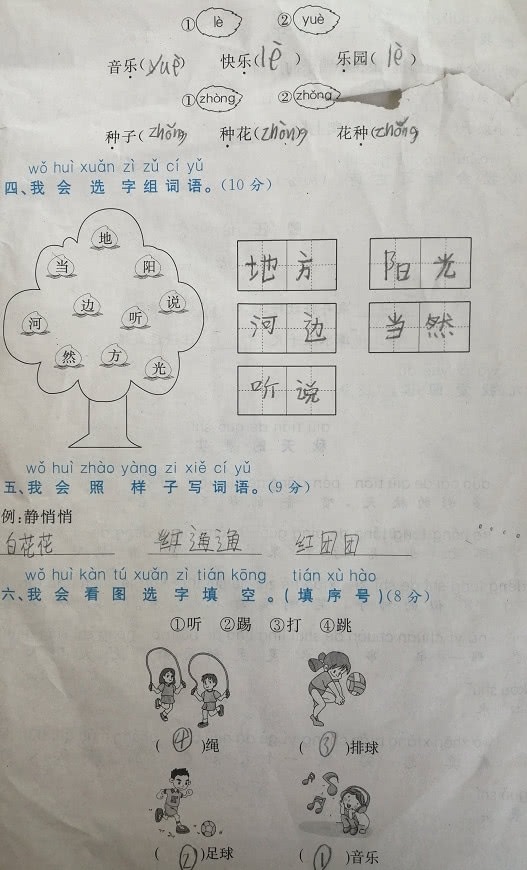 ①lè ②yuè
音乐(yuè) 快乐(lè) 乐园(lè)
①zhòng ②zhǒng
种子(zhǒng) 种花(zhòng) 花种(zhǒng)
wǒ huì xuǎn zì zǔ cí yǔ
四、我会选字组词语。(10分)
地
当 阳
边 说
河 听
然 方 光
地方 阳光
河边 当然
听说
wǒ huì zhào yàng zi xiě cí yǔ
五、我会照样子写词语。(9分)
例:静悄悄
白花花 红通通 红团团
wǒ huì kàn tú xuǎn zì tián kōng tián xù hào
六、我会看图选字填空。(填序号)(8分)
①听 ②踢 ③打 ④跳
(④)绳 (③)排球
(②)足球 (①)音乐